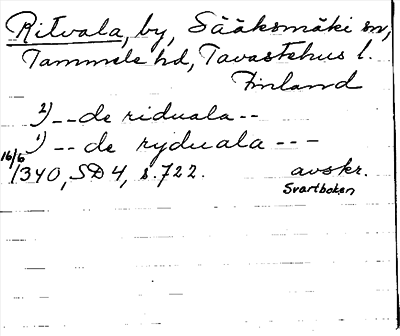 Ritvala, by, Sääksmäki sn,
Tammela hd, Tavastehus l.
Finland
2) -- de riduala --
1) -- de ryduala ---
16/6 1340, SD 4, s. 722. avskr.
Svartboken